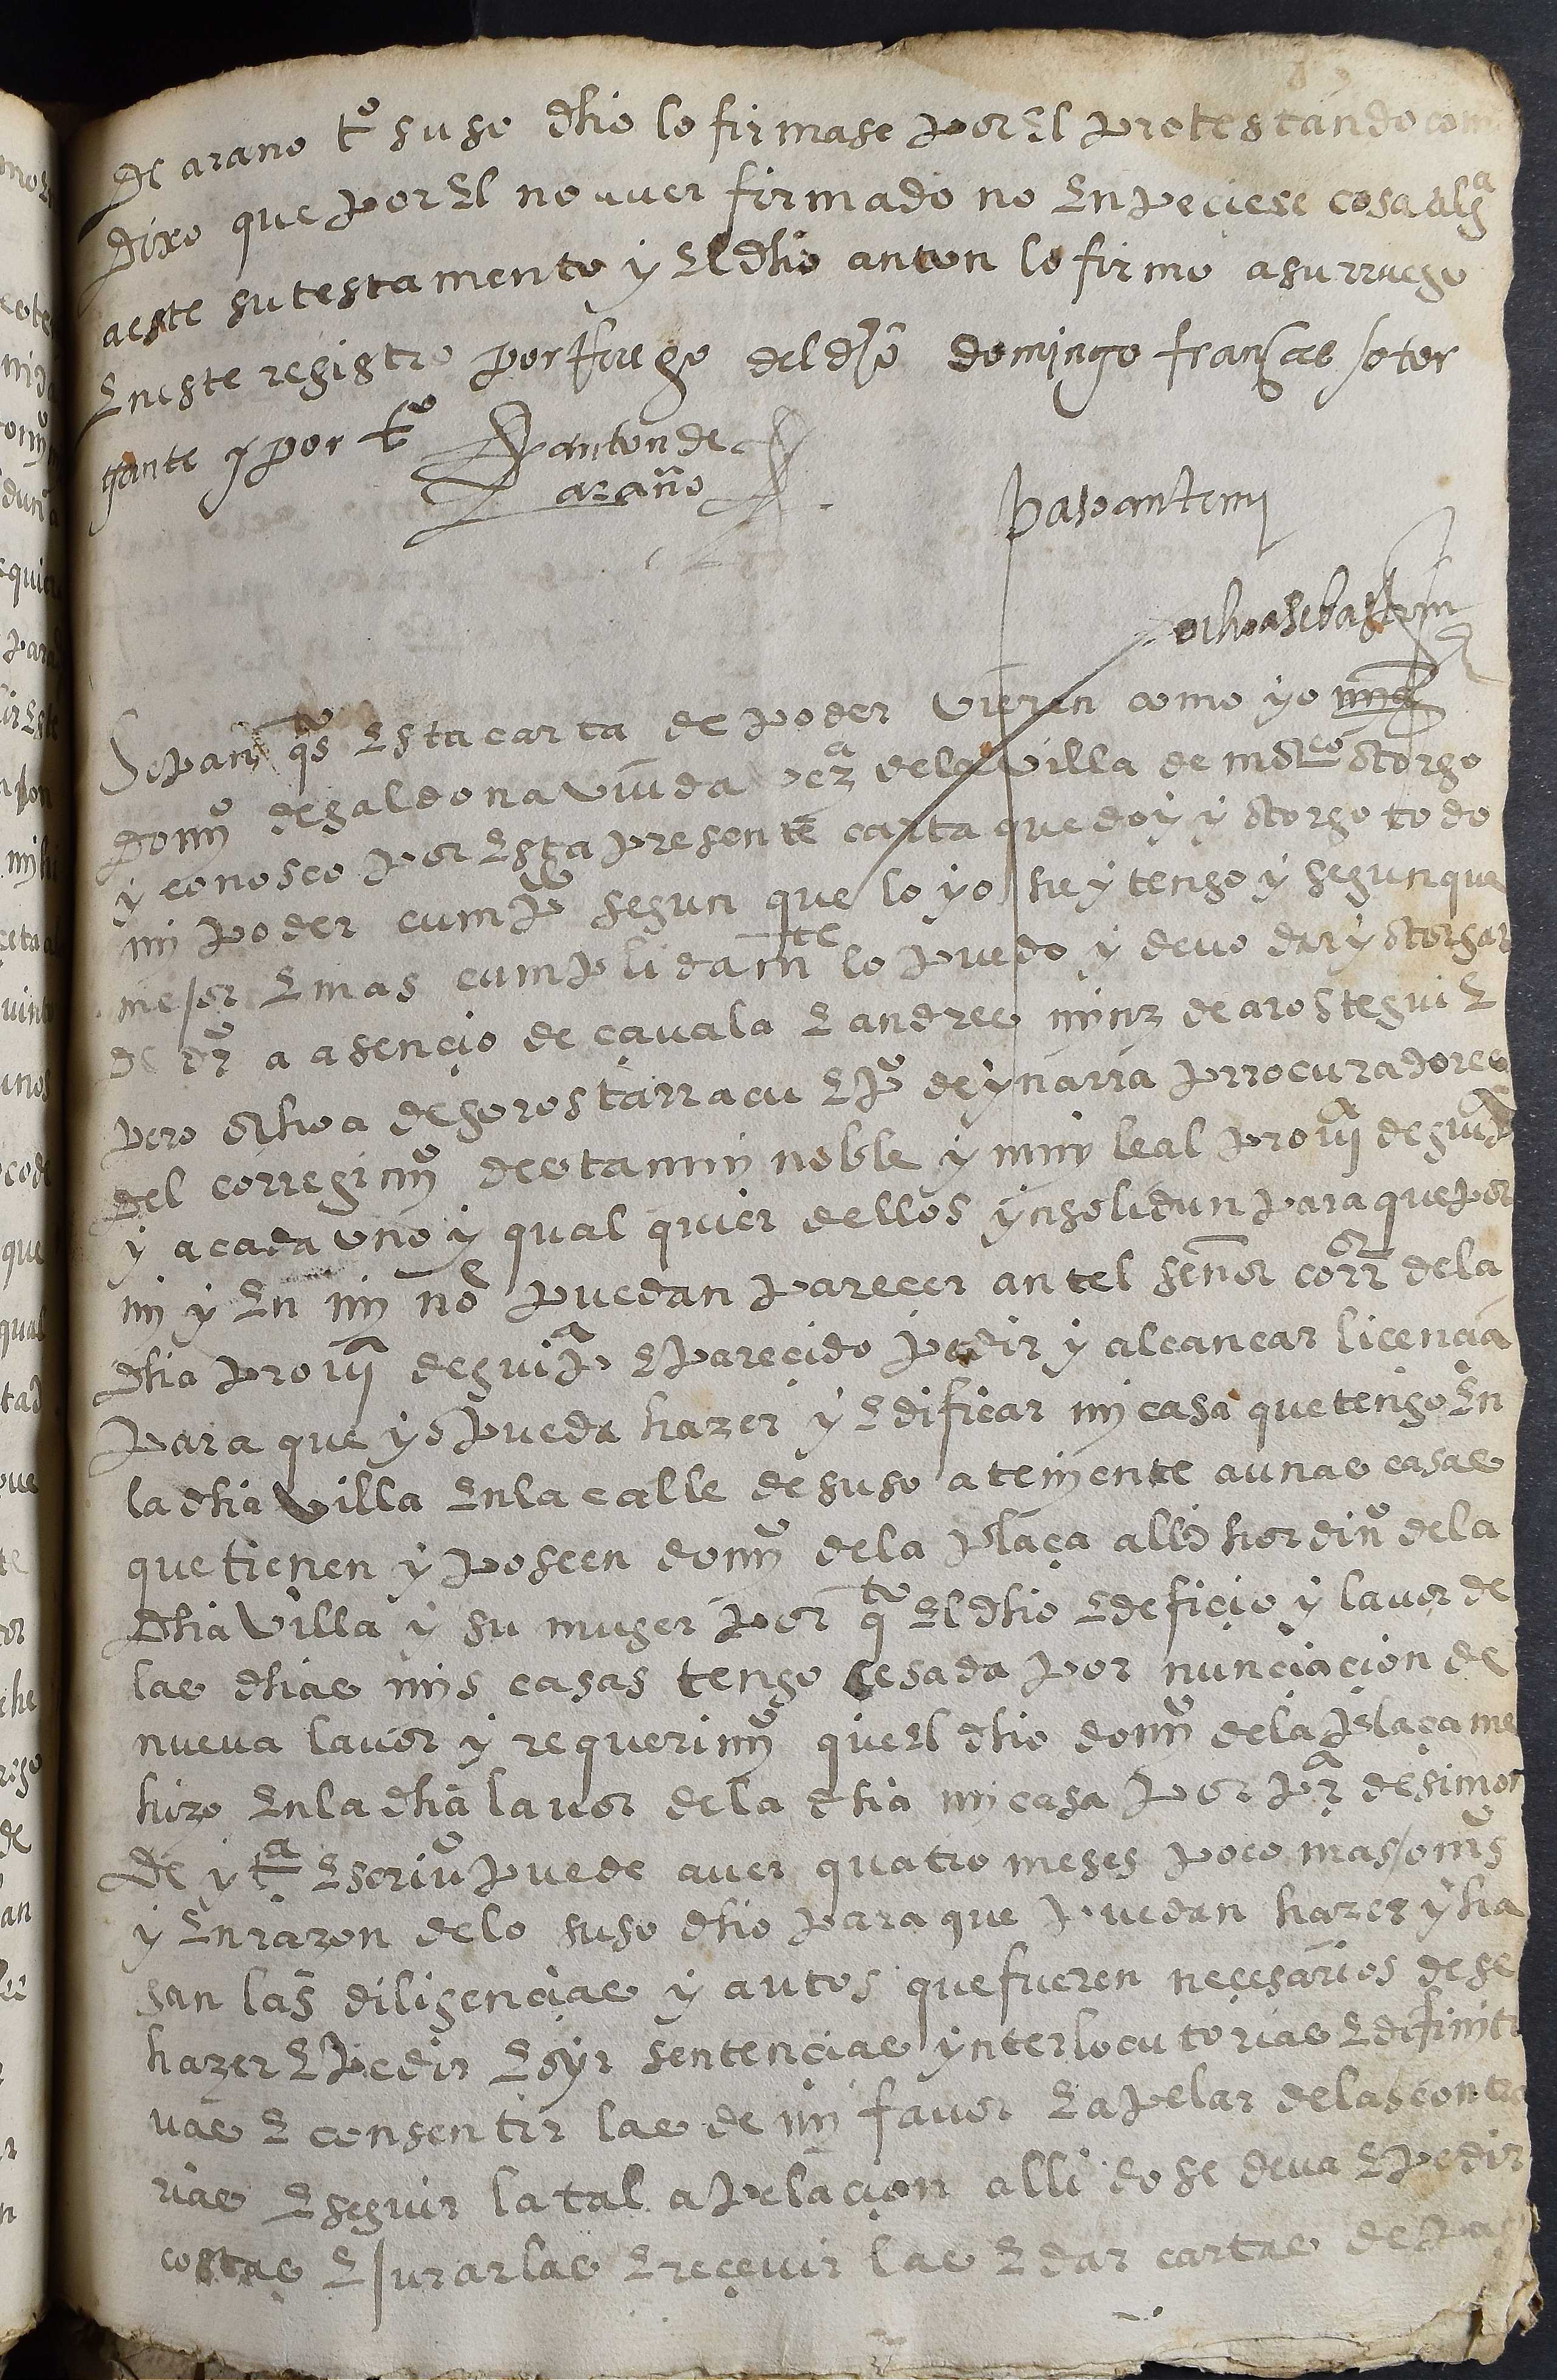 de arano tº suso dho lo firmase por el protestando com
dixo que por el no aver firmado no enpeciese cosa algª
a este su testamento y el dho anton lo firmo a su rruego
en este registro por Ruego del dho domingo frances otor
gante y por tº anton de
arano
paso ante mi
ochoa sebastian
Sepan qºs esta carta de poder vieren como yo mª
domº de galdona viuda vezª de la villa de mºco otorgo
y conosco por esta presente carta que doy y otorgo todo
mi poder cumpº segun que lo yo he y tengo y segun que
mejor e mas cumplidamte lo puedo y devo dar y otorgar
de drº a asençio de çavala e andres minz de arostegui e
pero ochoa de gorostarraçu e pº de ynarra procuradores
del corregimº desta muy noble y muy leal provª de guipª
y a cada uno y qual quier dellos ynsolidun para que por
mi y en mi nõe puedan parecer antel señor corror de la
dha provª de guipª e pareçido pedir y alcançar licencia
para que yo pueda hazer y edificar mi casa que tengo en
la dha villa en la calle de suso ateniente a unas casas
que tienen y poseen domº de la plaça alld hordinº de la
dha villa y su muger por qºto el dho edefiçio y lavor de
las dhas mis casas tengo cesada por nunciaçion de
nueva lavor y requerimº quel dho domº de la plaça me
hizo en la dha lavor de la dha mi casa por prª de simon
de ytª escrivº puede aver quatro meses poco mas o mºs
y en razon de lo suso dho para que puedan hazer y ha
gan las diligençias y autos que fueren neçesarios de se
hazer e pedir e oyr sentençias ynterlocutorias e definiti
vas e consentir las de mi favor e apelar de las contra
rias e seguir la tal apelaçion alli do se deva e pedir
costas e jurarlas e reçevir las e dar cartas de pag